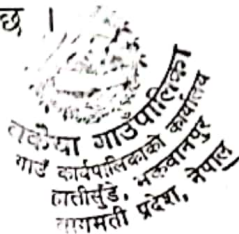 छ ।
वकैया गाउँपालिका
गाउँ कार्यपालिकाको कार्यालय
हात्तीसुँडे, मकवानपुर
बागमती प्रदेश, नेपाल